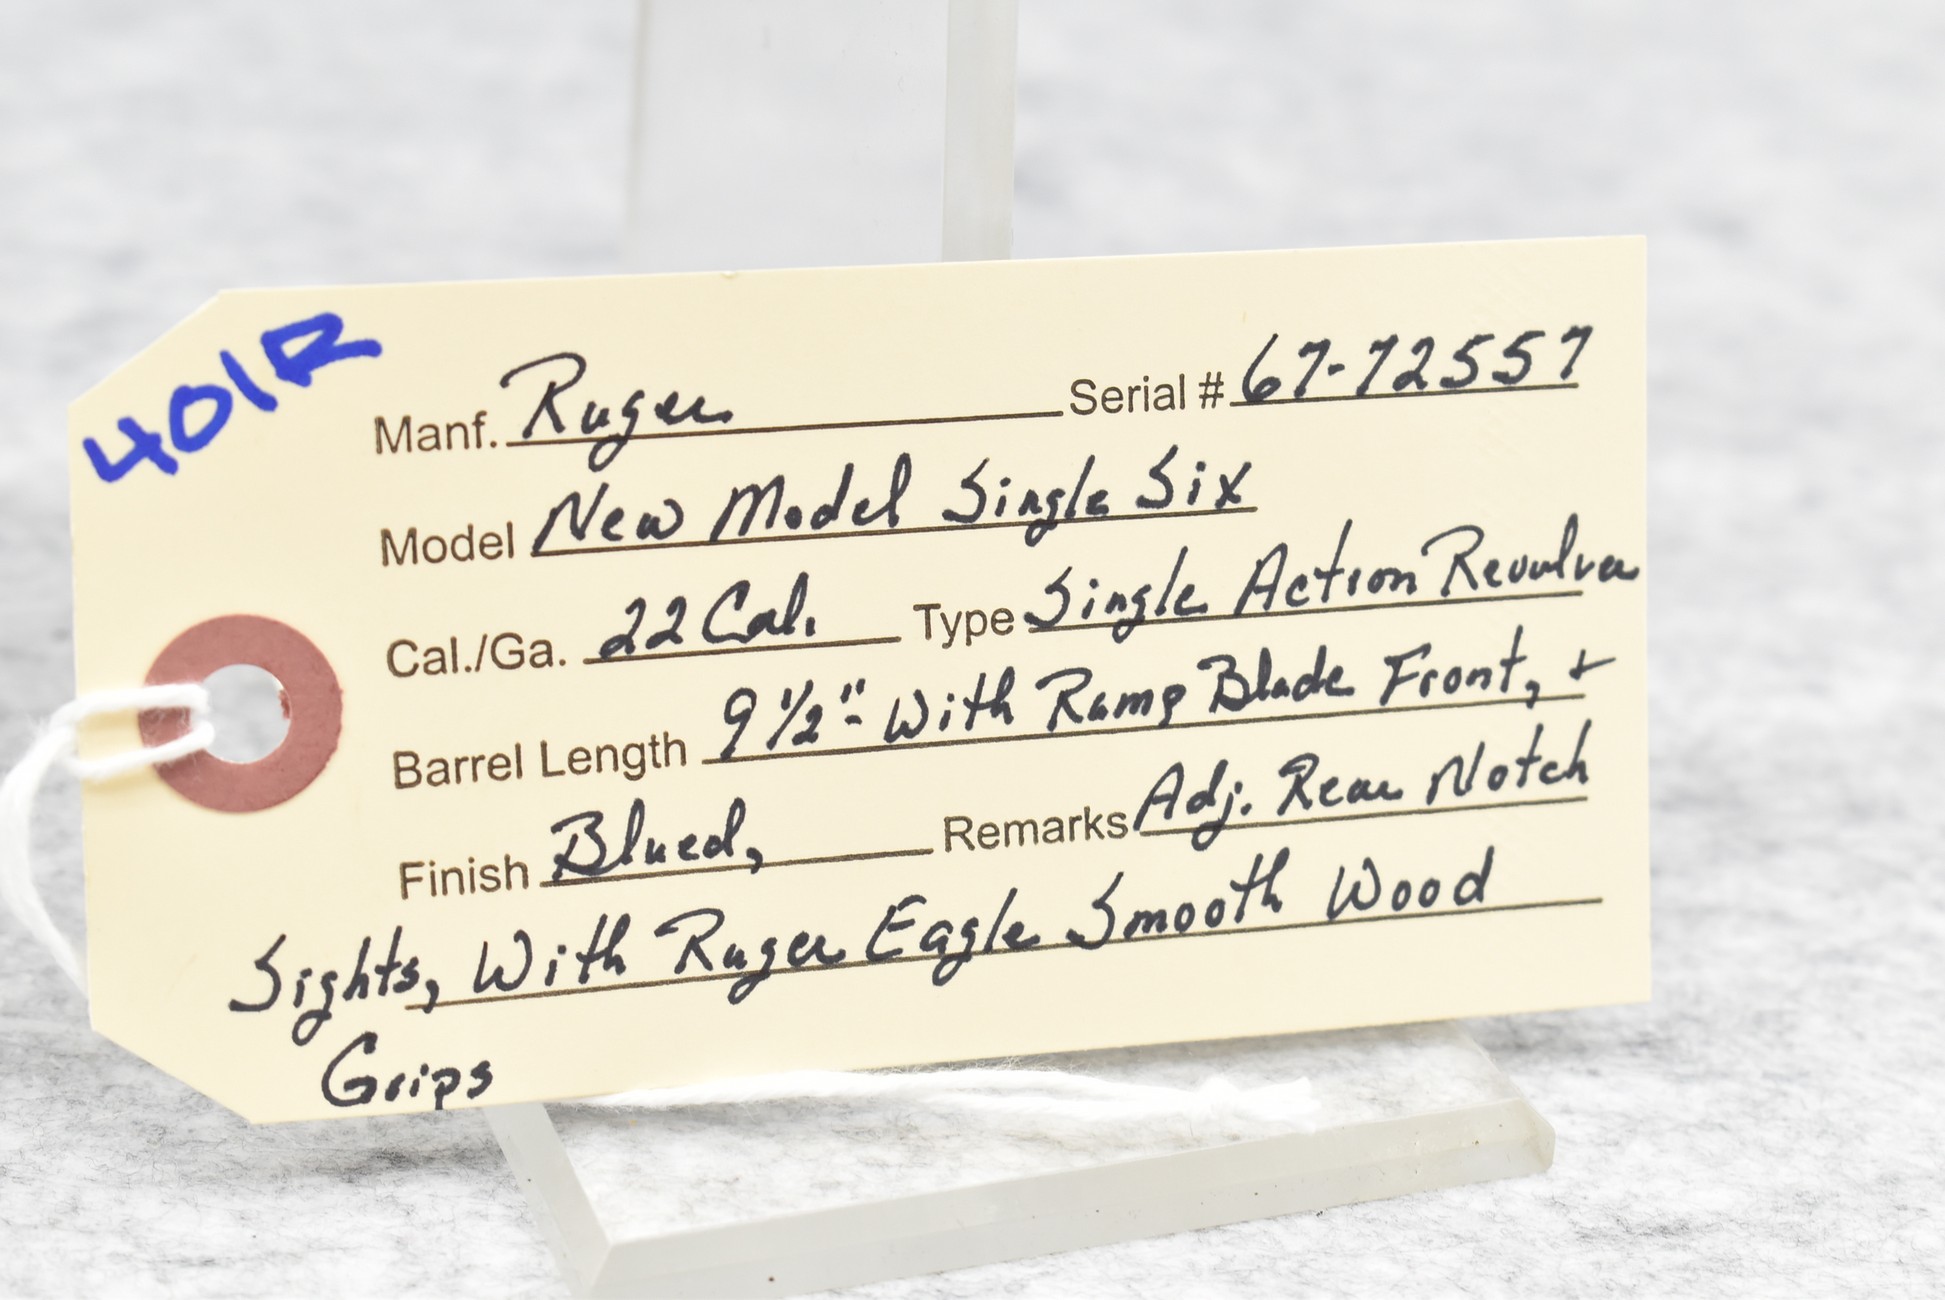 401R
Manf. Ruger Serial # 67-72557
Model New Model Single Six
Cal./Ga. 22 Cal. Type Single Action Revolver
Barrel Length 9 1/2"- With Ramp Blade Front, +
Finish Blued, Remarks Adj. Rear Notch
Sights, With Ruger Eagle Smooth Wood
Grips